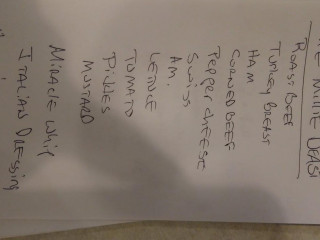 ROAST BEEF
TURKEY BREAST
HAM
CORNED BEEF
PEPPER CHEESE
SWISS
AM.
LETTUCE
TOMATO
PICKLES
MUSTARD
MIRACLE WHIP
ITALIAN DRESSING